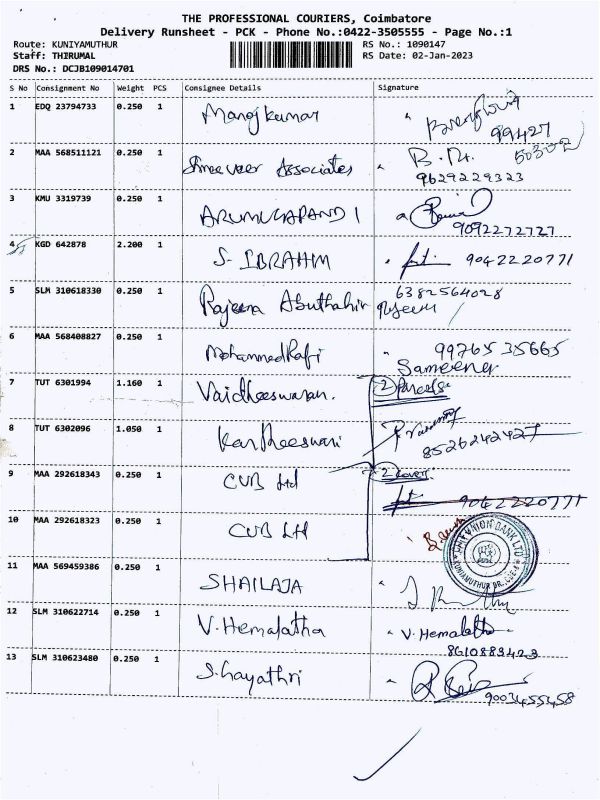 THE PROFESSIONAL COURIERS, Coimbatore
Delivery Runsheet - PCK - Phone No.:0422-3505555 - Page No.:1
Route: KUNIYAMUTHUR RS No.: 1090147
Staff: THIRUMAL RS Date: 02-Jan-2023
DRS No.: DCJB109014701
S No Consignment No Weight PCS Consignee Details Signature
1 EDQ 23794733 0.250 1 Manojkumar
99427
50302
2 MAA 568511121 0.250 1 Shreeveer Associates
9629229323
3 KMU 3319739 0.250 1 ARUMUGAPANDI
9092272727
4 KGD 642878 2.200 1 S. IBRAHIM 9042220771
5 SLM 310618330 0.250 1 Rajeena Abuthahir 6382564028
6 MAA 568408827 0.250 1 MohammedRafi 9976535665
Sameener
7 TUT 6301994 1.160 1 Vaidheeswaran. 2 Parcels
8 TUT 6302096 1.050 1 Kartheeswari
8526242427
9 MAA 292618343 0.250 1 CUB Ltd 2 cover
9042220771
10 MAA 292618323 0.250 1 CUB Ltd
CITY UNION BANK LTD
KUNIAMUTHUR BR.
11 MAA 569459386 0.250 1 SHAILAJA
12 SLM 310622714 0.250 1 V. Hemalatha V. Hemalatha
8610889423
13 SLM 310623480 0.250 1 S. Gayathri
9003455458